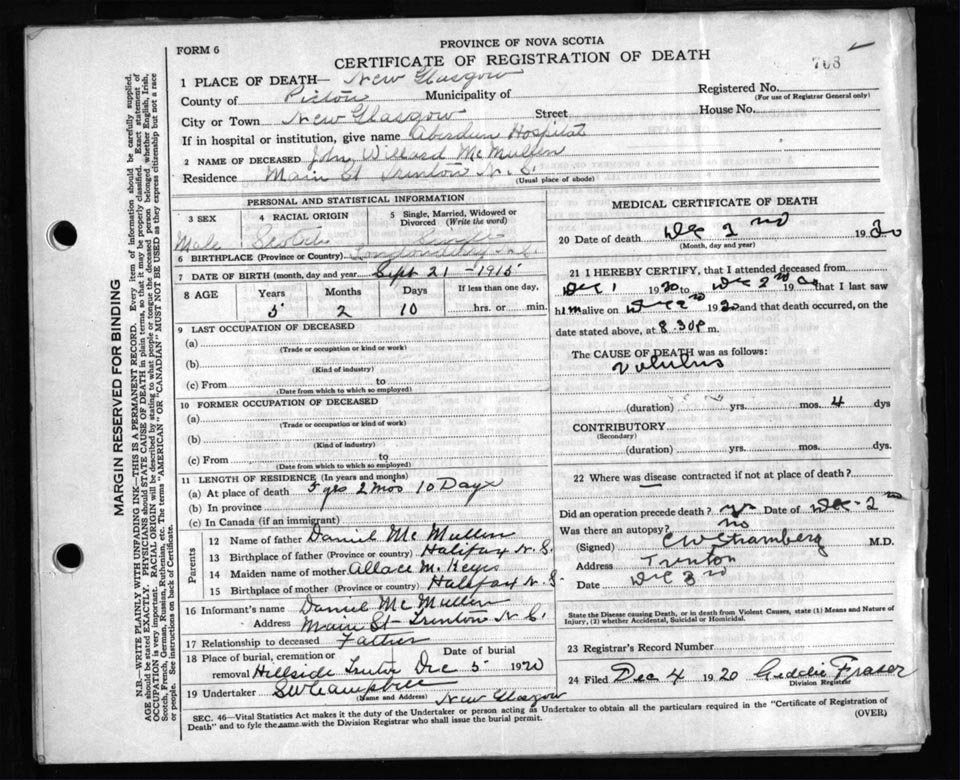 FORM 6
PROVINCE OF NOVA SCOTIA
CERTIFICATE OF REGISTRATION OF DEATH
708
1 PLACE OF DEATH— New Glasgow
County of Pictou Municipality of
Registered No.
(For use of Registrar General only)
City or Town New Glasgow Street House No.
If in hospital or institution, give name Aberdeen Hospital
2 NAME OF DECEASED John Willard McMullen
Residence Main St Trenton N.S.
(Usual place of abode)
PERSONAL AND STATISTICAL INFORMATION
3 SEX
4 RACIAL ORIGIN
5 Single, Married, Widowed or Divorced (Write the word)
Male Scotch Single
6 BIRTHPLACE (Province or Country) N.S.
7 DATE OF BIRTH (month, day and year) Sept 21 - 1915
8 AGE
Years Months Days If less than one day,
5 2 10 hrs. or min.
9 LAST OCCUPATION OF DECEASED
(a)
(Trade or occupation or kind or work)
(b)
(Kind of industry)
(c) From to
(Date from which to which so employed)
10 FORMER OCCUPATION OF DECEASED
(a)
(Trade or occupation or kind of work)
(b)
(Kind of industry)
(c) From to
(Date from which to which so employed)
11 LENGTH OF RESIDENCE (In years and months)
(a) At place of death 5 yrs 2 mos 10 Days
(b) In province
(c) In Canada (if an immigrant)
Parents
12 Name of father Daniel McMullen
13 Birthplace of father (Province or country) Halifax N.S.
14 Maiden name of mother M. Keyes
15 Birthplace of mother (Province or country) Halifax N.S.
16 Informant's name Daniel McMullen
Address Main St Trenton N.S.
17 Relationship to deceased Father
18 Place of burial, cremation or removal Date of burial
Hillside Dec 5 1920
19 Undertaker SW Campbell
(Name and Address) New Glasgow
MEDICAL CERTIFICATE OF DEATH
20 Date of death Dec 2nd 1920
(Month, day and year)
21 I HEREBY CERTIFY, that I attended deceased from
Dec 1 1920 to Dec 2nd 1920 that I last saw
him alive on Dec 2nd 1920 and that death occurred, on the
date stated above, at 8.30 p m.
The CAUSE OF DEATH was as follows:
Volvulus
(duration) yrs. mos. 4 dys
CONTRIBUTORY
(Secondary)
(duration) yrs. mos. dys.
22 Where was disease contracted if not at place of death?
Did an operation precede death? yes Date of Dec 2nd
Was there an autopsy? no
(Signed) CW Stramberg M.D.
Address Trenton
Date Dec 3rd
State the Disease causing Death, or in death from Violent Causes, state (1) Means and Nature of
Injury, (2) whether Accidental, Suicidal or Homicidal.
23 Registrar's Record Number
24 Filed Dec 4 1920 Geddie Fraser
Division Registrar
SEC. 46—Vital Statistics Act makes it the duty of the Undertaker or person acting as Undertaker to obtain all the particulars required in the "Certificate of Registration of
Death" and to fyle the same with the Division Registrar who shall issue the burial permit.
(OVER)
MARGIN RESERVED FOR BINDING
N.B.—WRITE PLAINLY WITH UNFADING INK—THIS IS A PERMANENT RECORD. Every item of information should be carefully supplied.
AGE should be stated EXACTLY. PHYSICIANS should STATE CAUSE OF DEATH in plain terms, so that it may be properly classified. Exact statement of
OCCUPATION is very important. RACIAL ORIGIN will be described by stating to what people or tongue the deceased person belonged, whether English, Irish,
Scotch, French, German, Russian, Ruthenian, etc. The terms "AMERICAN" OR "CANADIAN" MUST NOT BE USED as they express citizenship but not a race
or people. See instructions on back of Certificate.